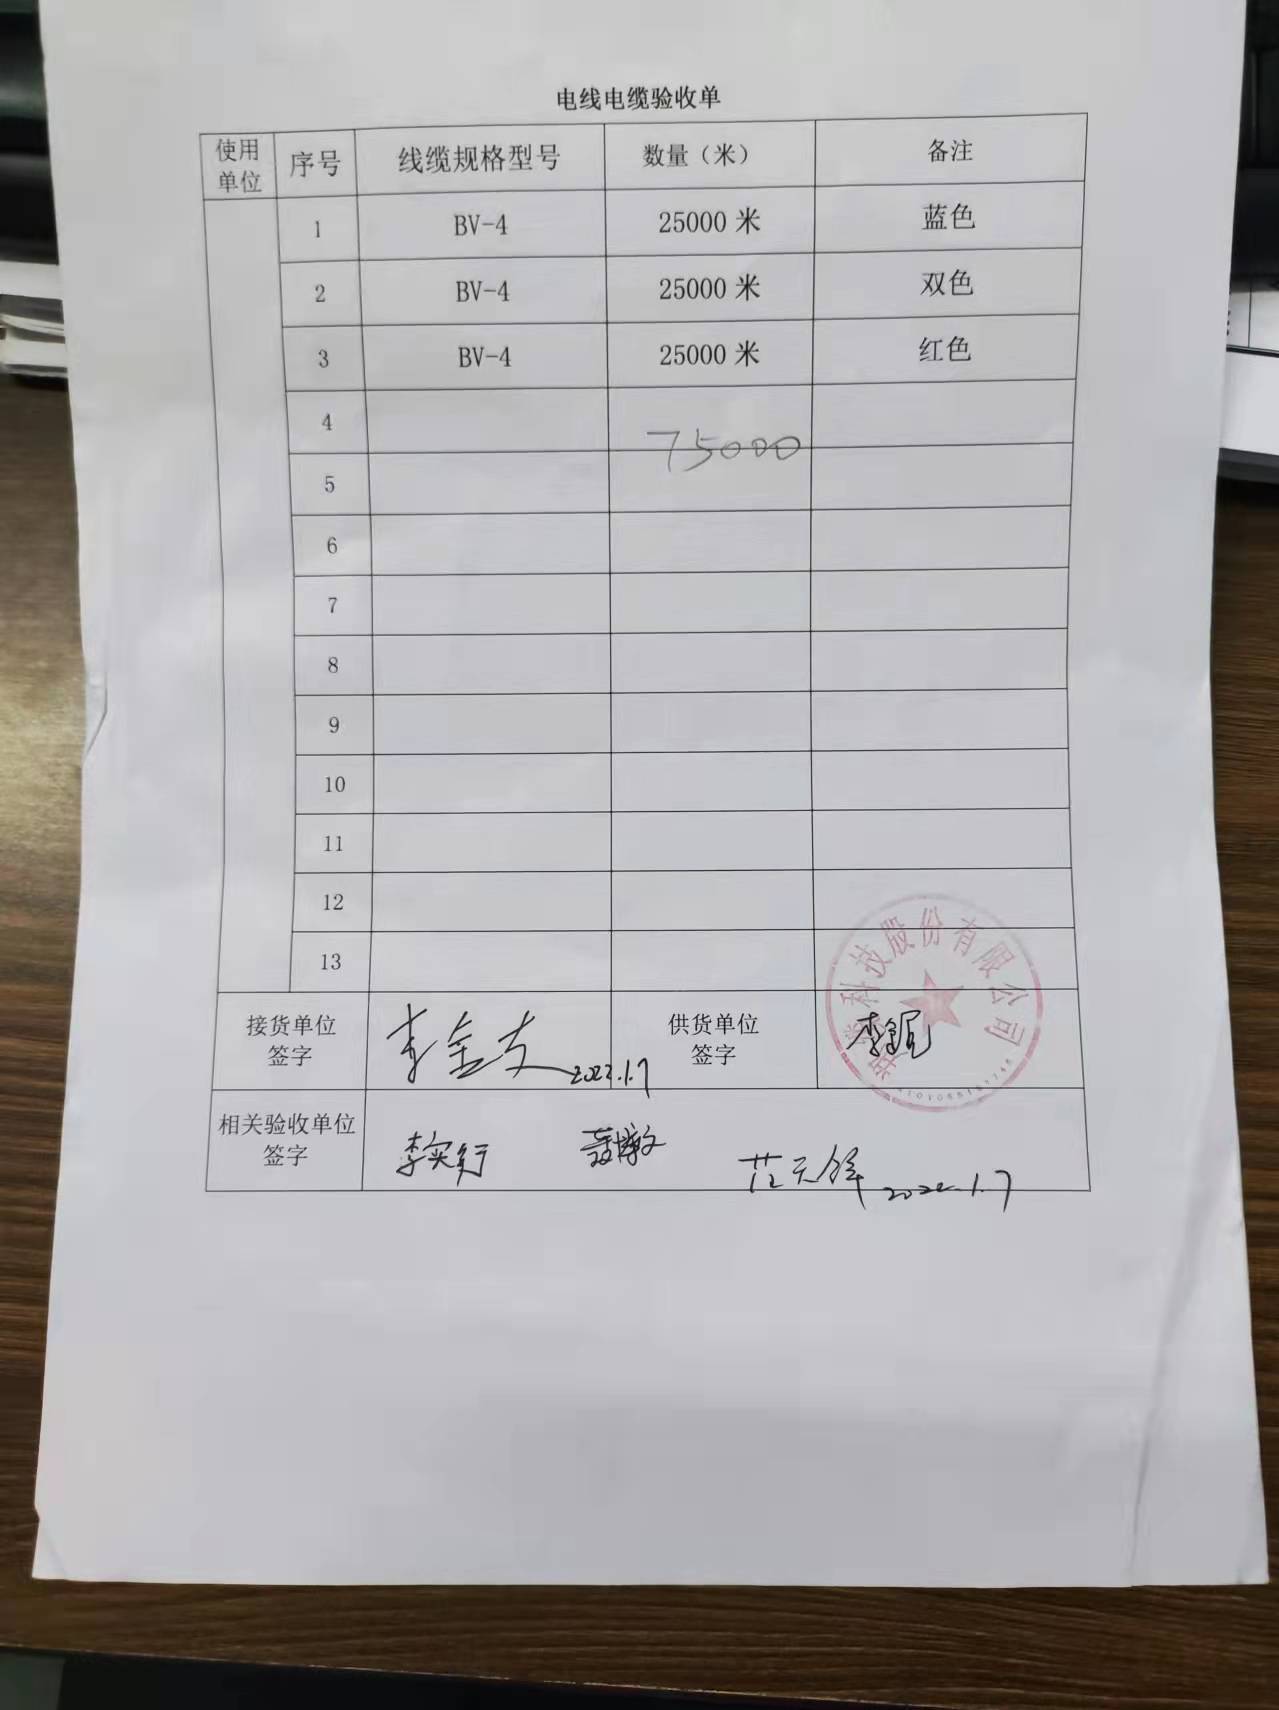 电线电缆验收单
使用单位 序号 线缆规格型号 数量（米） 备注
1 BV-4 25000 米 蓝色
2 BV-4 25000 米 双色
3 BV-4 25000 米 红色
4
75000
5
6
7
8
9
10
11
12
13
科技股份有限公司
接货单位
签字
李全支 2022.1.7
供货单位
签字
相关验收单位
签字
李实行
范天锋 2022.1.7